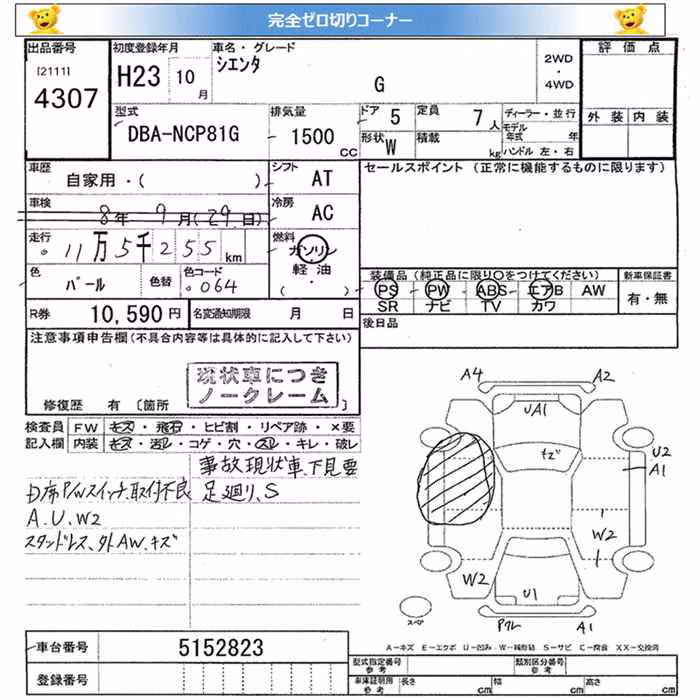 完全ゼロ切りコーナー
出品番号 初度登録年月 車名・グレード 評価点
[2111] H23 10月 シエンタ 2WD
4307 G ・
4WD
型式 排気量 ドア 5 定員 7人 ディーラー・並行 外装 内装
DBA-NCP81G 1500 CC 形状 W 積載 kg モデル年式 年
ハンドル 左・右
車歴 シフト セールスポイント (正常に機能するものに限ります)
自家用・( ) AT
車検 8年 9月(29日) 冷房 AC
走行 11万5千255 km 燃料 ガソリン
軽油
( ・ )
色 パール 色替 色コード 064 装備品(純正品に限り○をつけてください) 新車保証書
PS PW ABS エアB AW 有・無
SR ナビ TV カワ
R券 10,590円 名変通知期限 月 日 後日品
注意事項申告欄(不具合内容等は具体的に記入して下さい)
現状車につき
ノークレーム
修復歴 有 [箇所
検査員 FW キズ・飛石・ヒビ割・リペア跡・×要
記入欄 内装 キズ・汚レ・コゲ・穴・スレ・キレ・破レ
事故現状車、下見要
D席P/Wスイッチ取付不良 足廻り、S
A.U.W2
スタンドレス、外AW.キズ
A4 A2
UA1
キズ
U2
A1
W2
W2
U1
スペア
Pクレ A1
A-キズ E-エクボ U-凹み W-補修跡 S-サビ C-腐食 XX-交換済
車台番号 5152823
型式指定番号 参考 類別区分番号 参考
登録番号 車庫証明用 参考 長さ cm 幅 cm 高さ cm